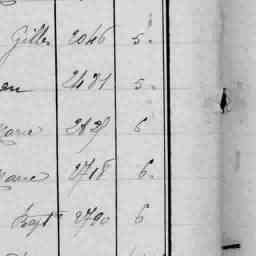 Gilles 2046 5.
en 2481 5.
Marie 2828 6
Marie 2718 6.
Bapt 2790 6